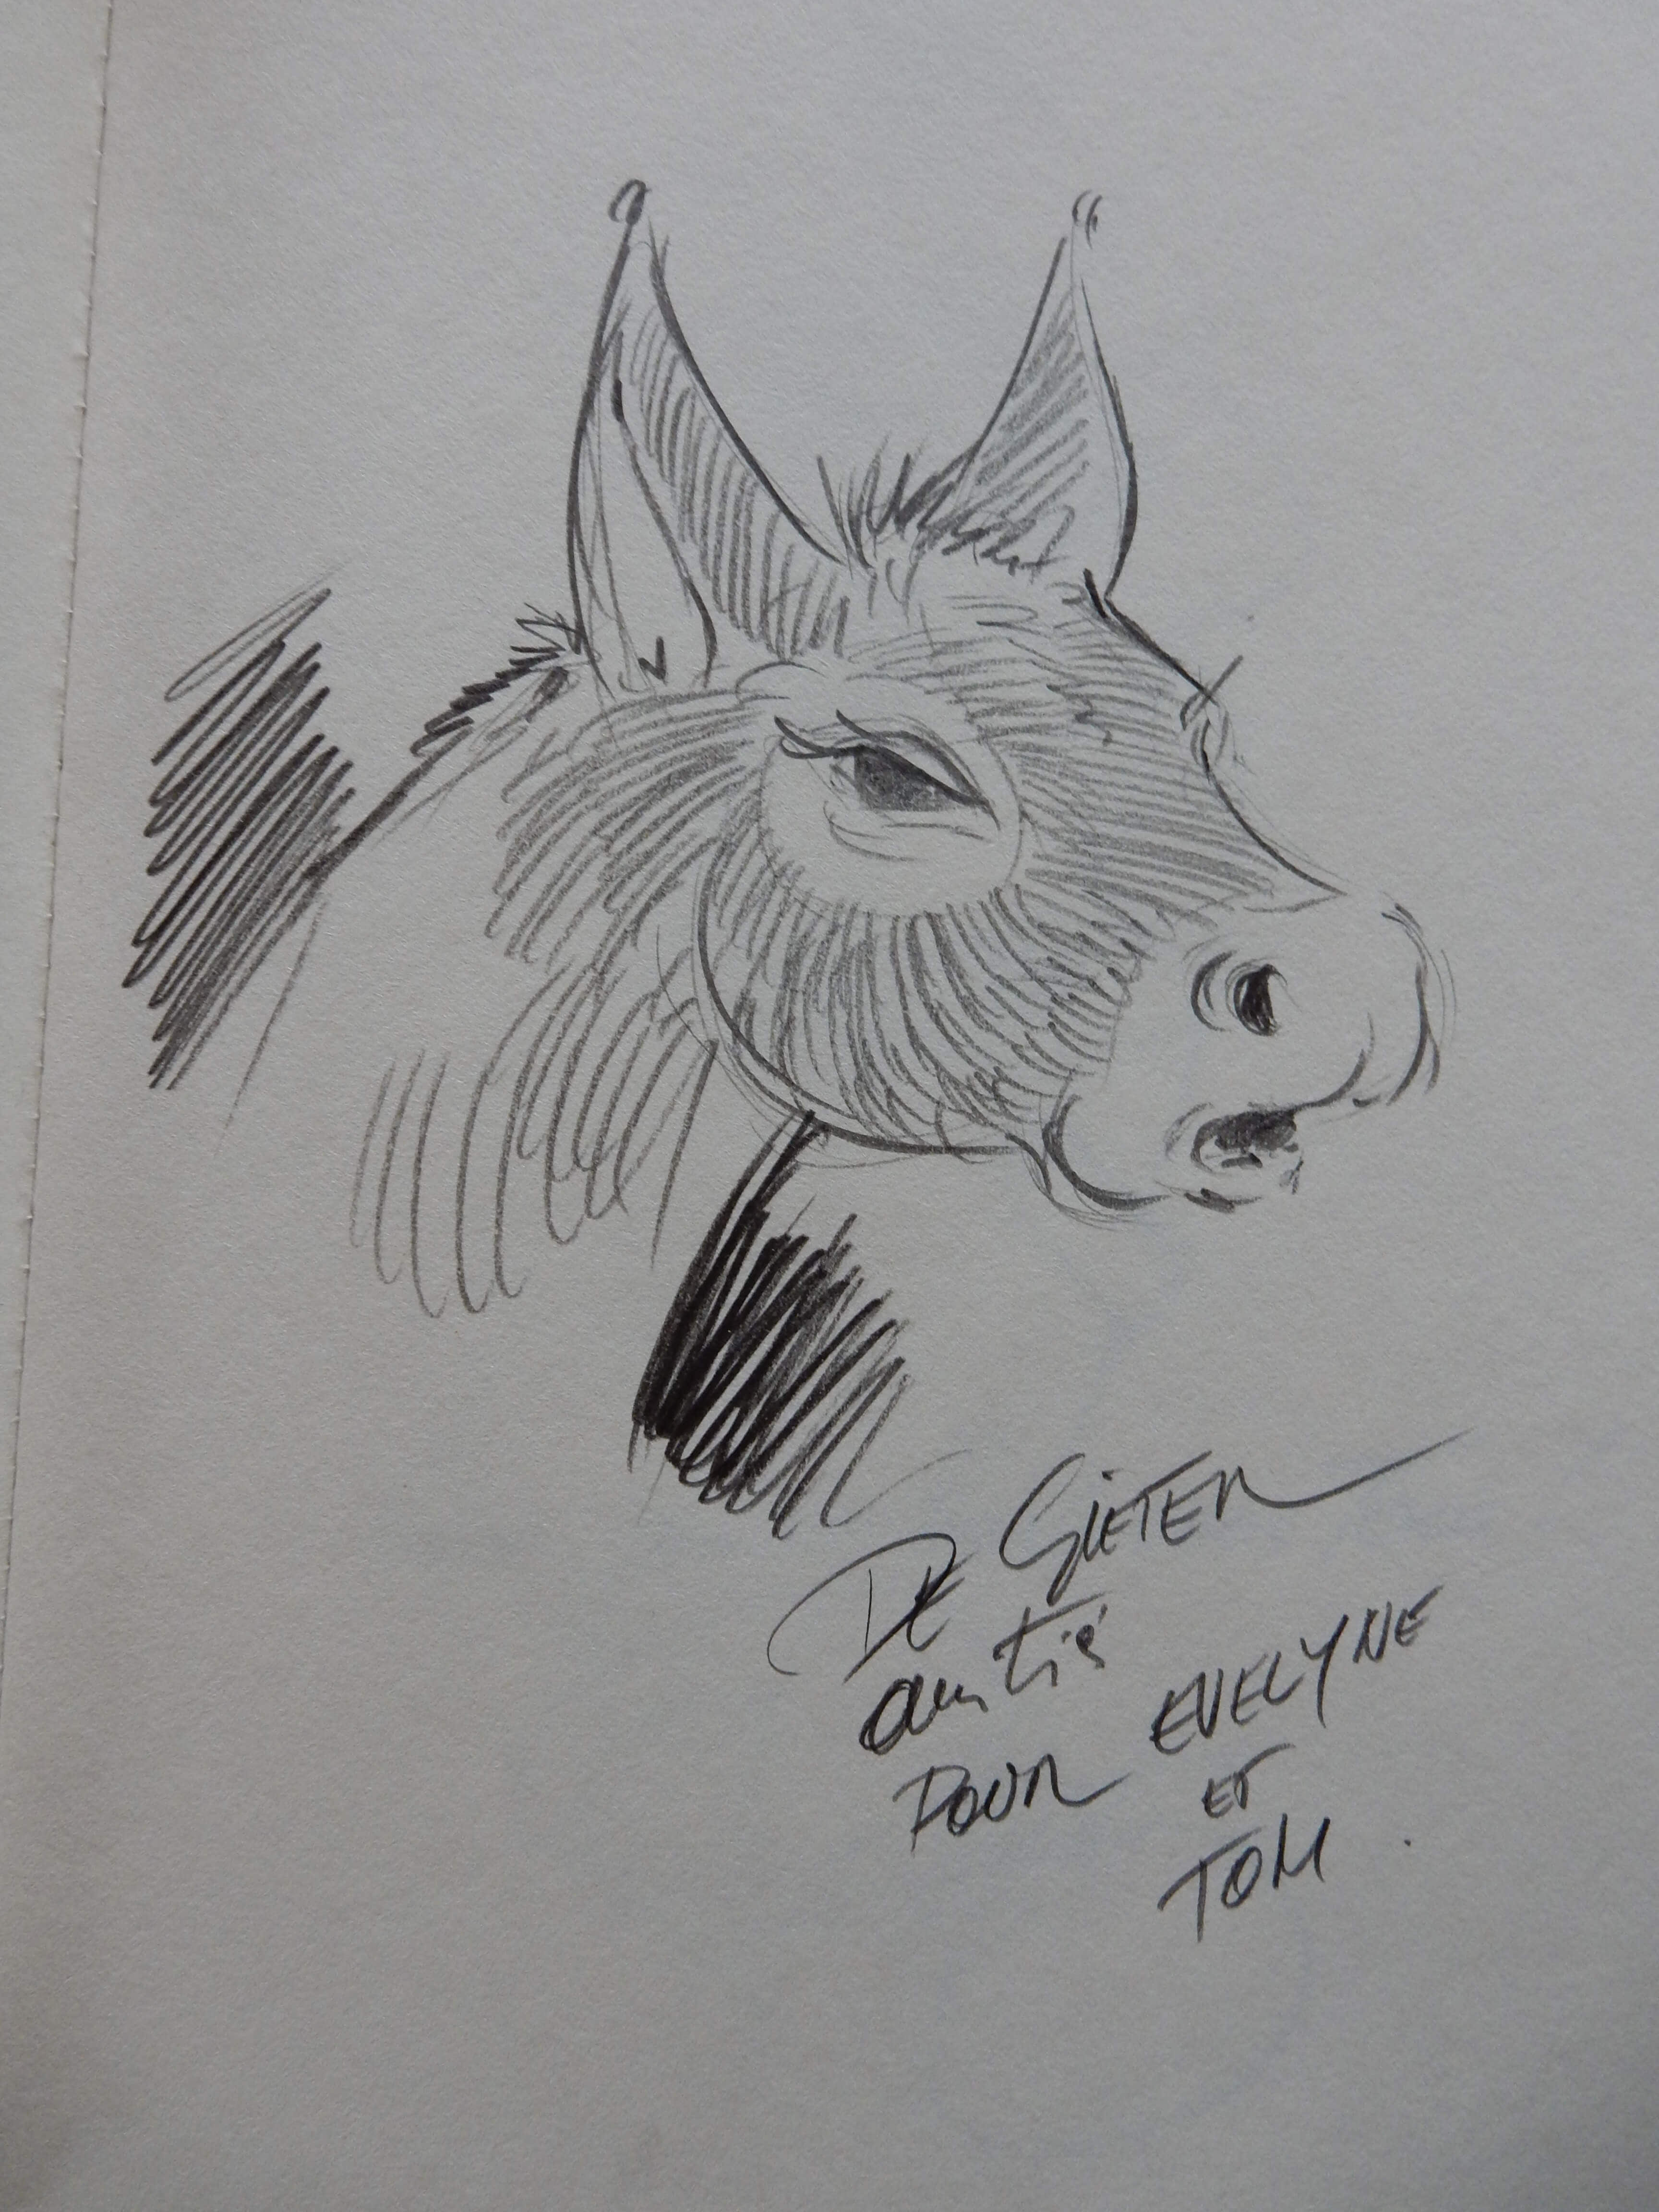 DE GIETER
amitié
POUR EVELYNE
ET
TOM.